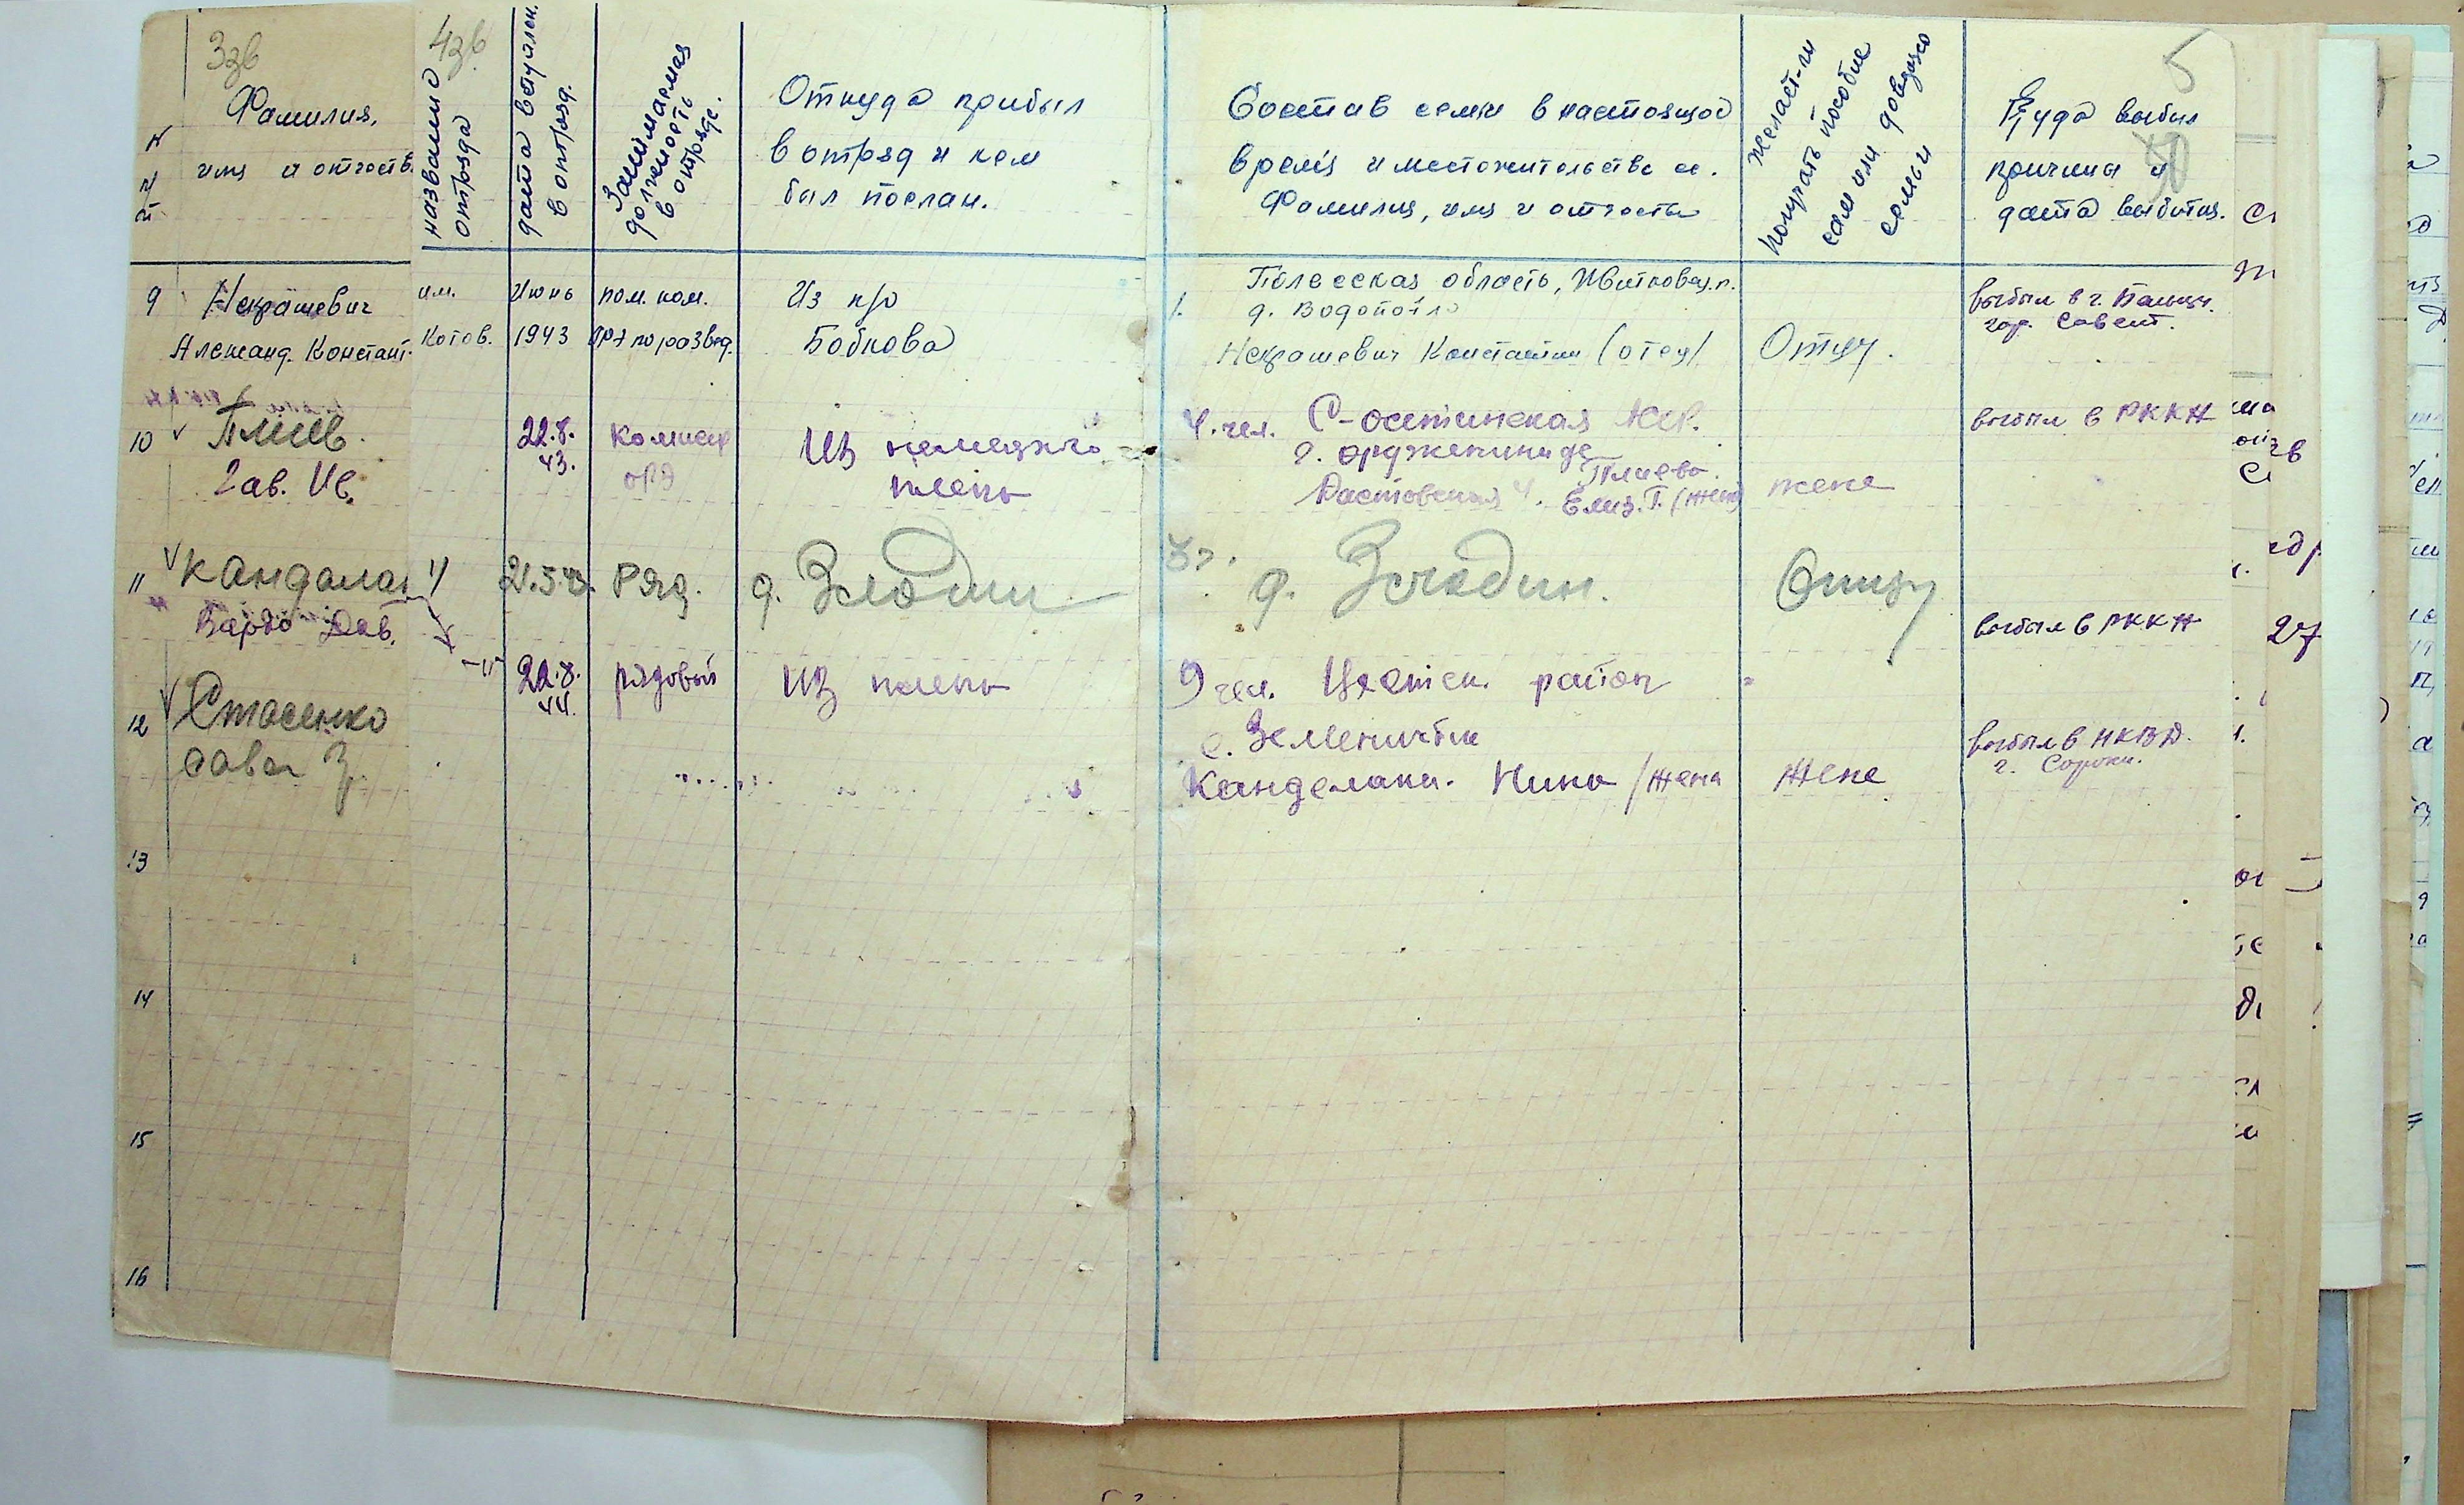 3зв
4зв
5
N
п/п
Фамилия,
имя и отчеств.
название
отряда
дата вступлен.
в отряд.
Занимаемая
должность
в отряде.
Откуда прибыл
в отряд и кем
был послан.
Состав семьи в настоящее
время и местожительство ее.
Фамилия, имя и отчество
желает-ли
получать пособие
сам или
семьи
Куда выбыл
причина и
дата выбытия.
9 Некрашевич
Александ. Констант.
им.
Котов.
Июнь
1943
пом. ком.
по развед.
Из п/о
Бобкова
1.
Полесская область,
д. Водопойло
Некрашевич Константин (отец)
Отцу.
выбыл в г.
гор. Совет.
10 Плиев
Гав. Ив.
22.8.
43.
Комиссар
орд
Из немецкого
плена
4. чел. С-осетинская АССР.
г. орджоникидзе
Плиева
Елиз. Г. (жена)
жене
выбыл в РККА
11 Кандалак
Вардо Дав.
21.5.43.
Ряд.
д. Злодин
3 д. Злодин.
Отцу
выбыл в РККА
12 Стасенко
Савва З.
-"-
22.8.
44.
рядовый
Из плена
9 чел. район
с.
Канделаки. Нина /жена
Жене
выбыл в НКВД.
г. Сороки.
13
14
15
16
27